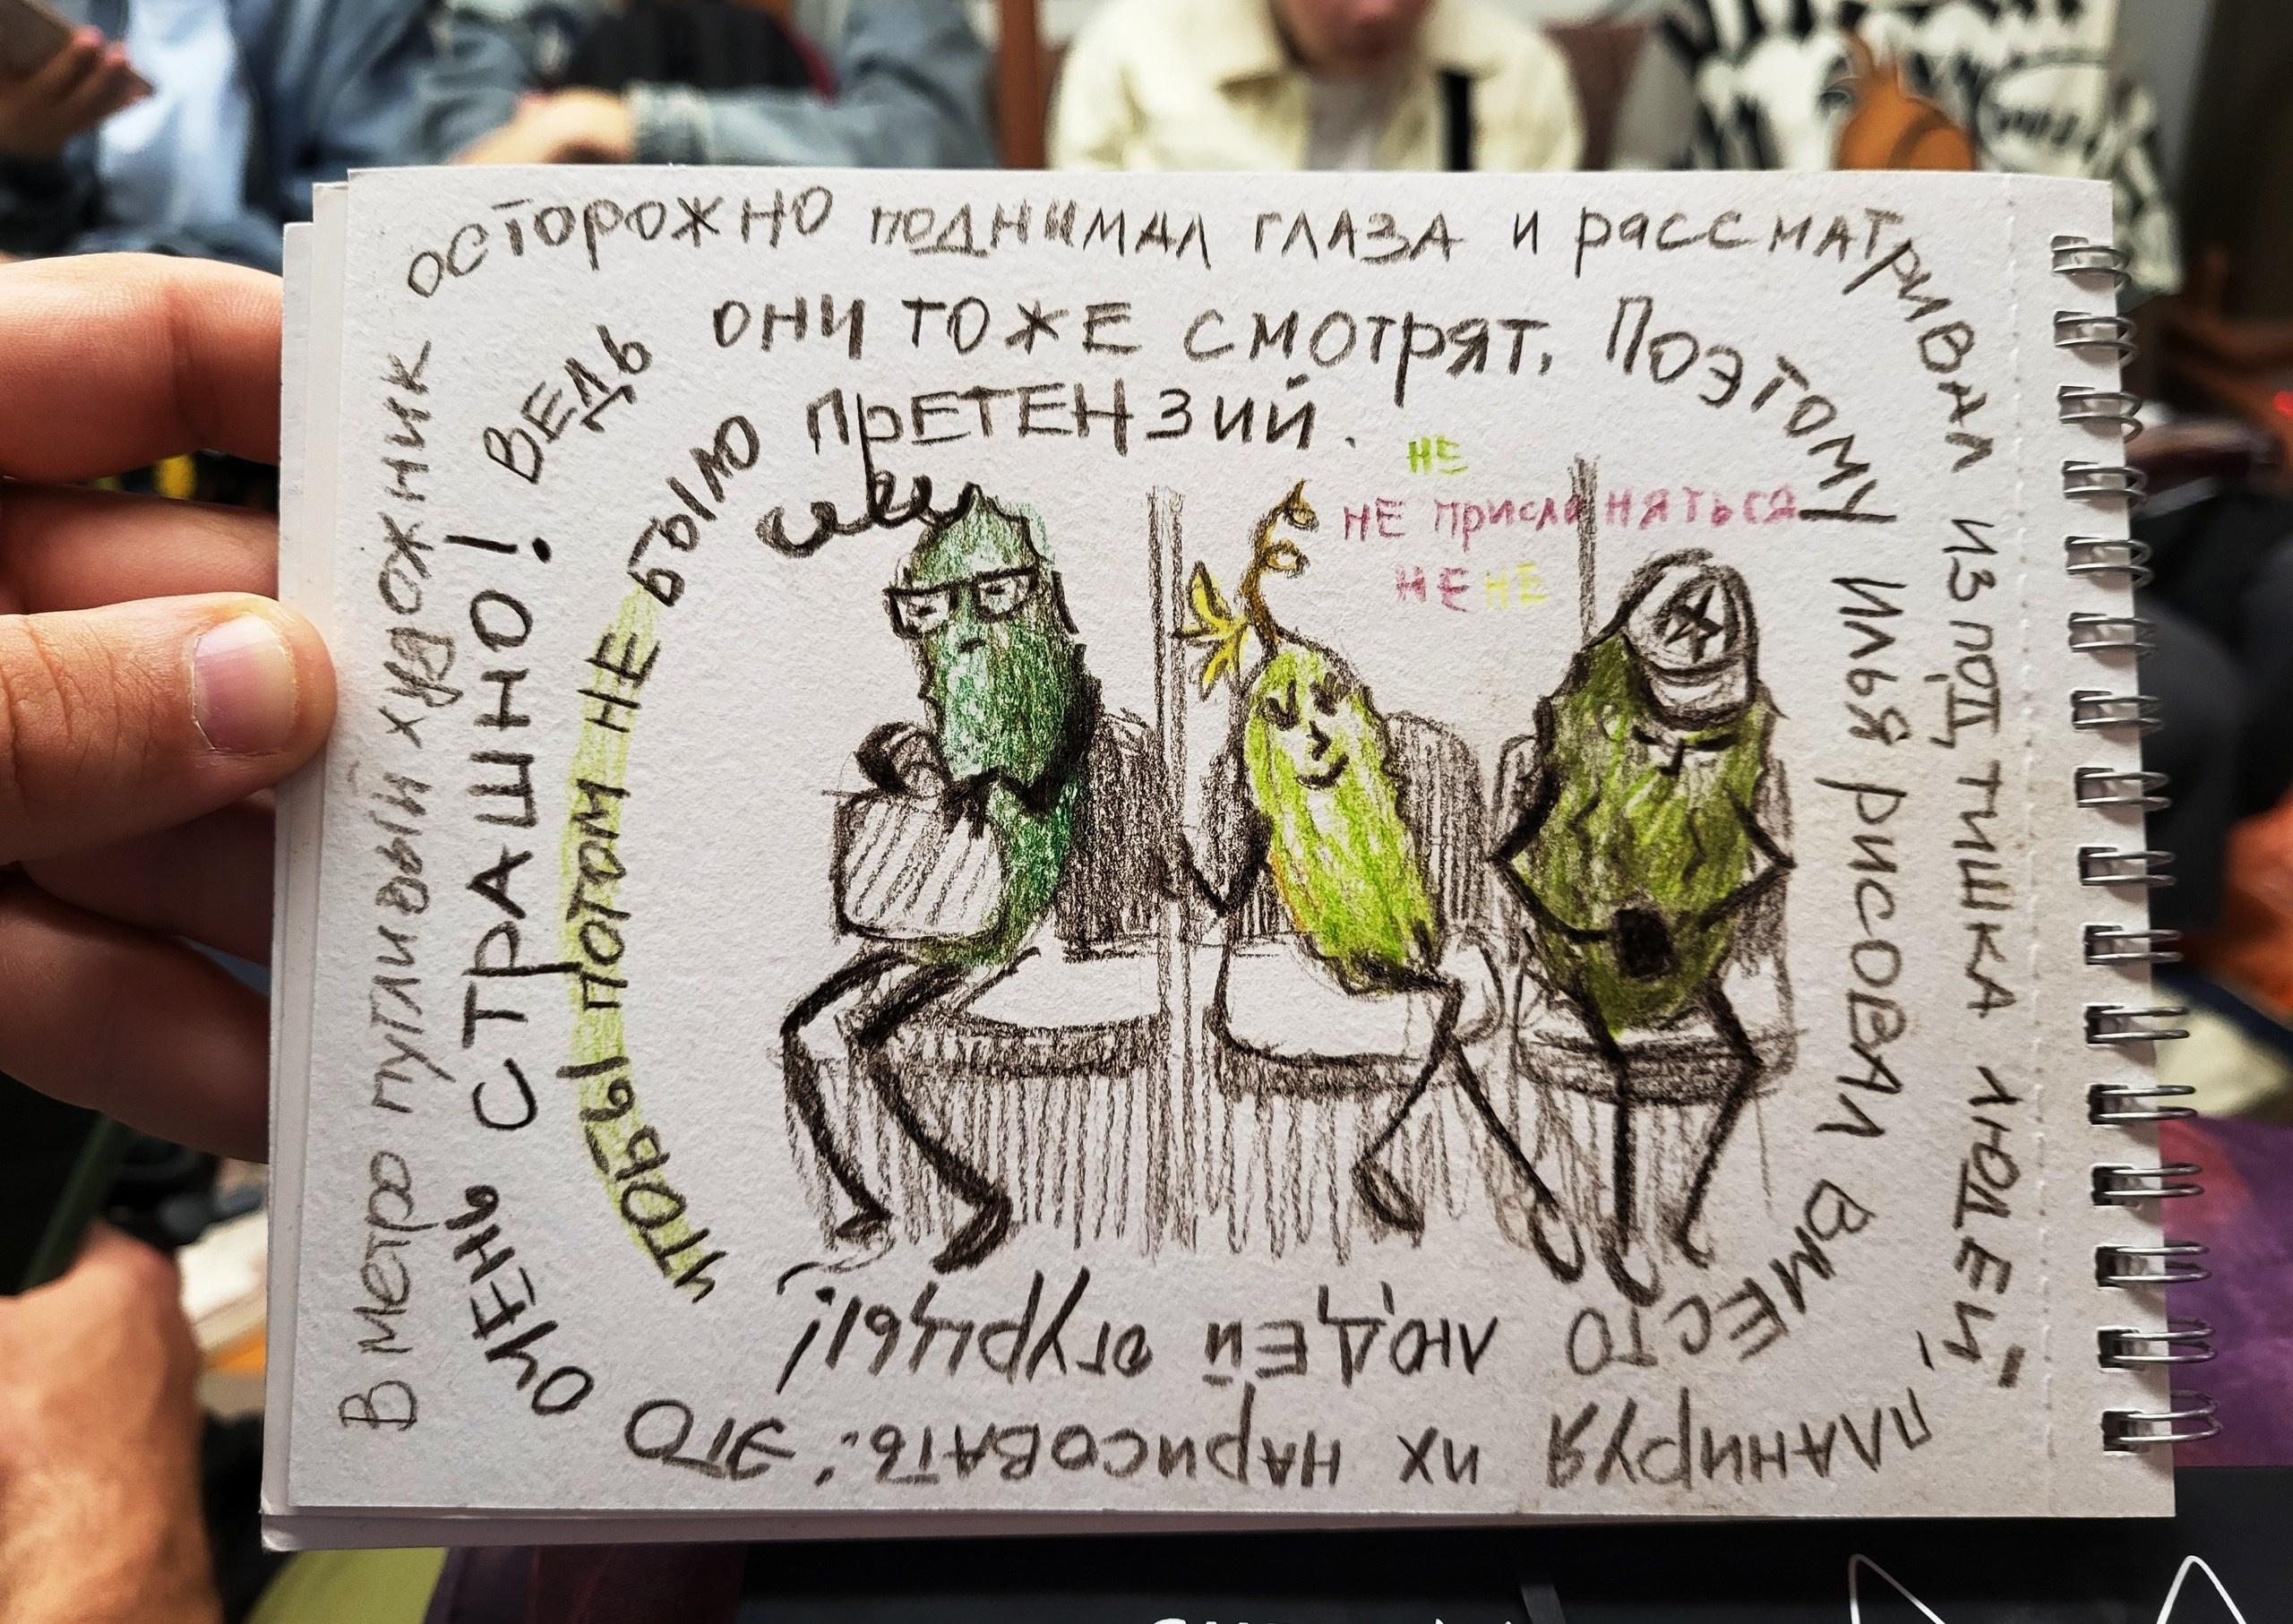 В метро пугливый художник
осторожно поднимал глаза и рассматривал
из под тишка людей,
планируя их нарисовать. Это
очень страшно! Ведь
они тоже смотрят. Поэтому
Илья рисовал вместо
людей огурцы!
Чтобы потом не было
претензий.
не
не прислоняться
не не